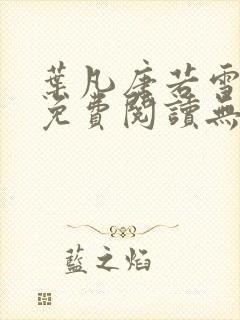 葉凡唐若雪
免費閱讀無
藍之焰